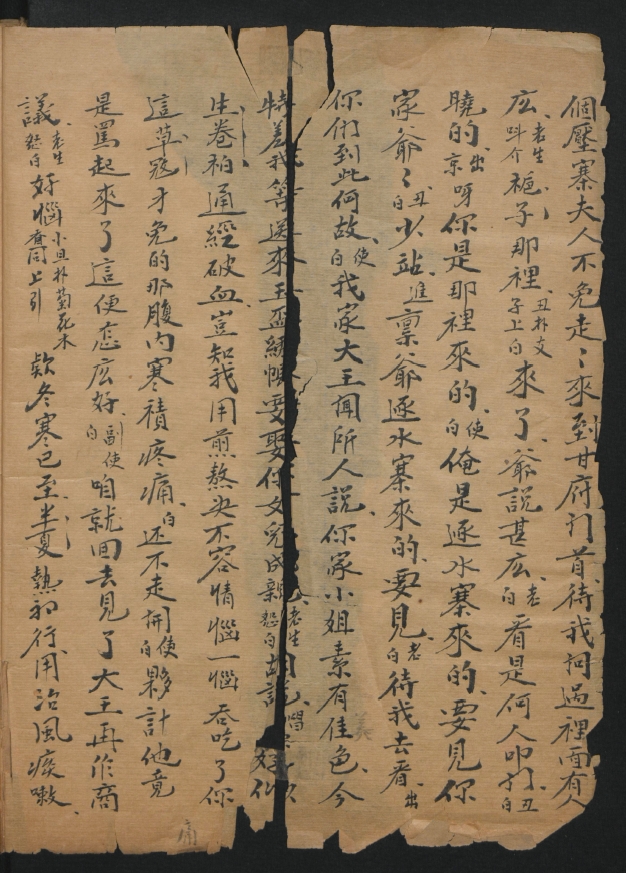 個壓寨夫人不免走〻來到甘府门首待我问過裡面有人
庅老生呌介裩子那裡丑扑文子上白來了爺說甚庅老白看是何人叩门丑白
曉的出京白呀你是那裡來的使白俺是逐水寨來的要見你
家爺〻丑白少站進稟爺逐水寨來的要見老白待我去看出
你们到此何故使白我家大王闻所人説你家小姐素有佳色今
特差我等送來玉盃綉幔要娶你女兒成親老生怒白胡説好似
生卷柏通經破血豈知我用煎熬决不容情惱一惱吞吃了你
這草寇才免的那腹内寒積疼痛白还不走開使白夥計他竟
是罵起來了這便怎庅好副使白咱就回去見了大王再作商
議老生怒白好惱小旦扑菊花木香同上引欵冬寒已至半夏熱初行用治風痰嗽